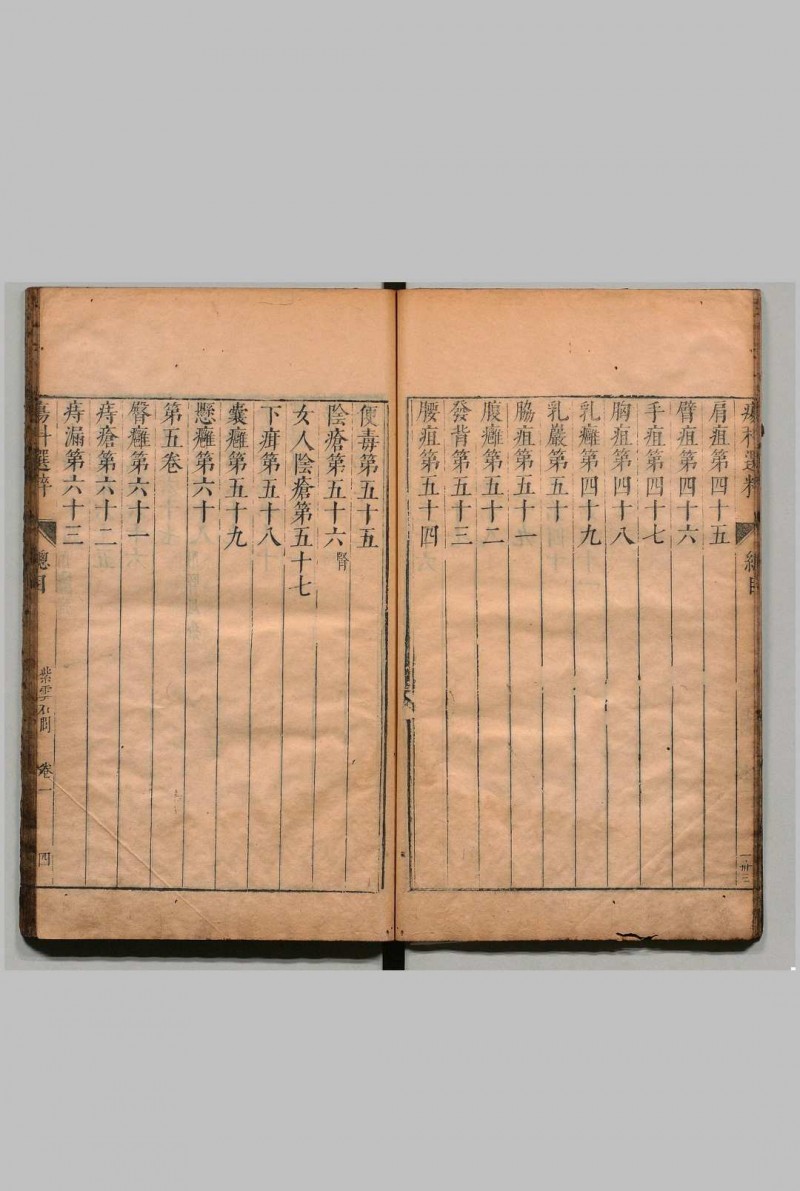 瘍科選粹
總目
肩疽第四十五
臂疽第四十六
手疽第四十七
胸疽第四十八
乳癰第四十九
乳巖第五十
脇疽第五十一
腹癰第五十二
發背第五十三
腰疽第五十四
便毒第五十五
陰瘡第五十六 腎
女人陰瘡第五十七
下疳第五十八
囊癰第五十九
懸癰第六十
第五卷
臀癰第六十一
痔瘡第六十二
痔漏第六十三
瘍科選粹
總目
卷一
四